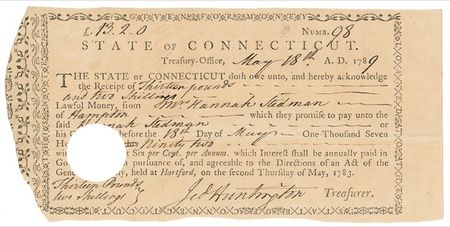 GVENFORMVNG
L. 13.2.0 NUMB. 98
STATE OF CONNECTICUT.
Treasury-Office, May 18th A. D. 1789
THE STATE OF CONNECTICUT doth owe unto, and hereby acknowledge
the Receipt of Thirteen pounds
and two Shillings
Lawful Money, from Mrs Hannah Stedman
of Hampton which they promise to pay unto the
said Hannah Stedman
before the 18th Day of May One Thousand Seven
Ninety two
at Six per Cent. per Annum. which Interest shall be annually paid in
pursuance of, and agreeable to the Directions of an Act of the
held at Hartford, on the second Thursday of May, 1783.
Thirteen Pounds
two Shillings Jed Huntington Treasurer.